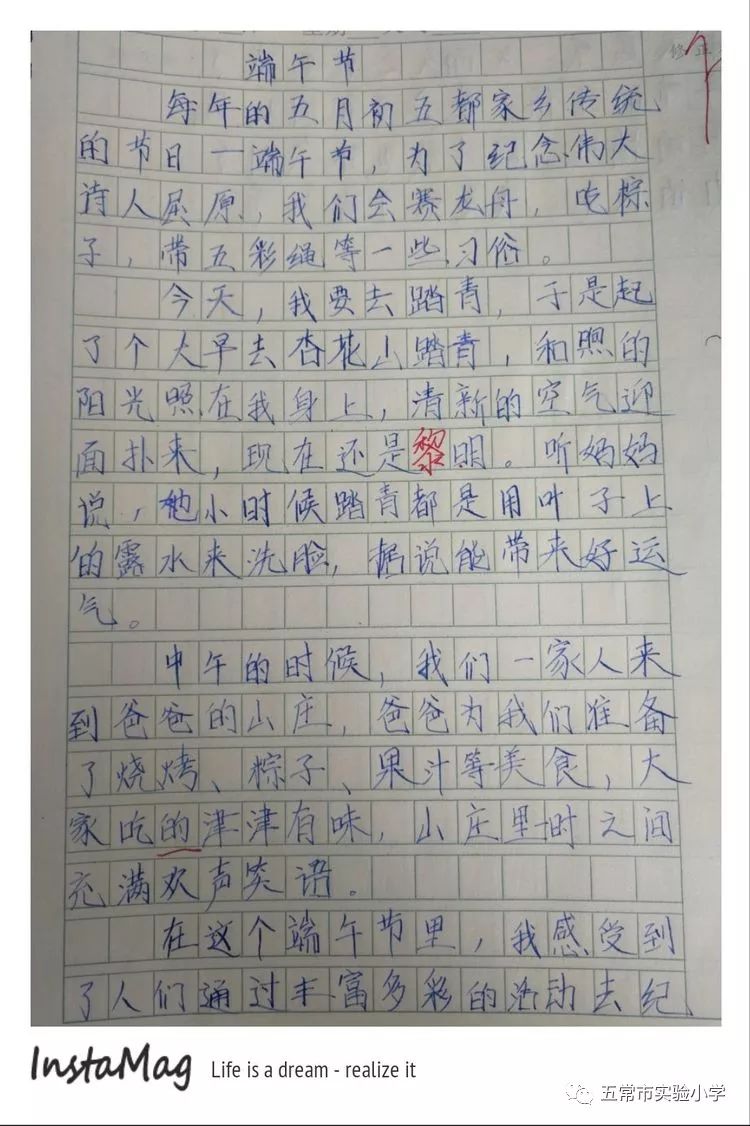 修正
端午节
每年的五月初五都家乡传统
的节日一端午节，为了纪念伟大
诗人屈原，我们会赛龙舟，吃棕
子，带五彩绳等一些习俗。
今天，我要去踏青，于是起
了个大早去杏花山踏青，和煦的
阳光照在我身上，清新的空气迎
面扑来，现在还是黎明。听妈妈
说，他小时候踏青都是用叶子上
的露水来洗脸，据说能带来好运
气。
中午的时候，我们一家人来
到爸爸的山庄，爸爸为我们准备
了烧烤、粽子、果汁等美食，大
家吃的津津有味，山庄里时之间
充满欢声笑语。
在这个端午节里，我感受到
了人们通过丰富多彩的活动去纪
InstaMag Life is a dream - realize it
五常市实验小学